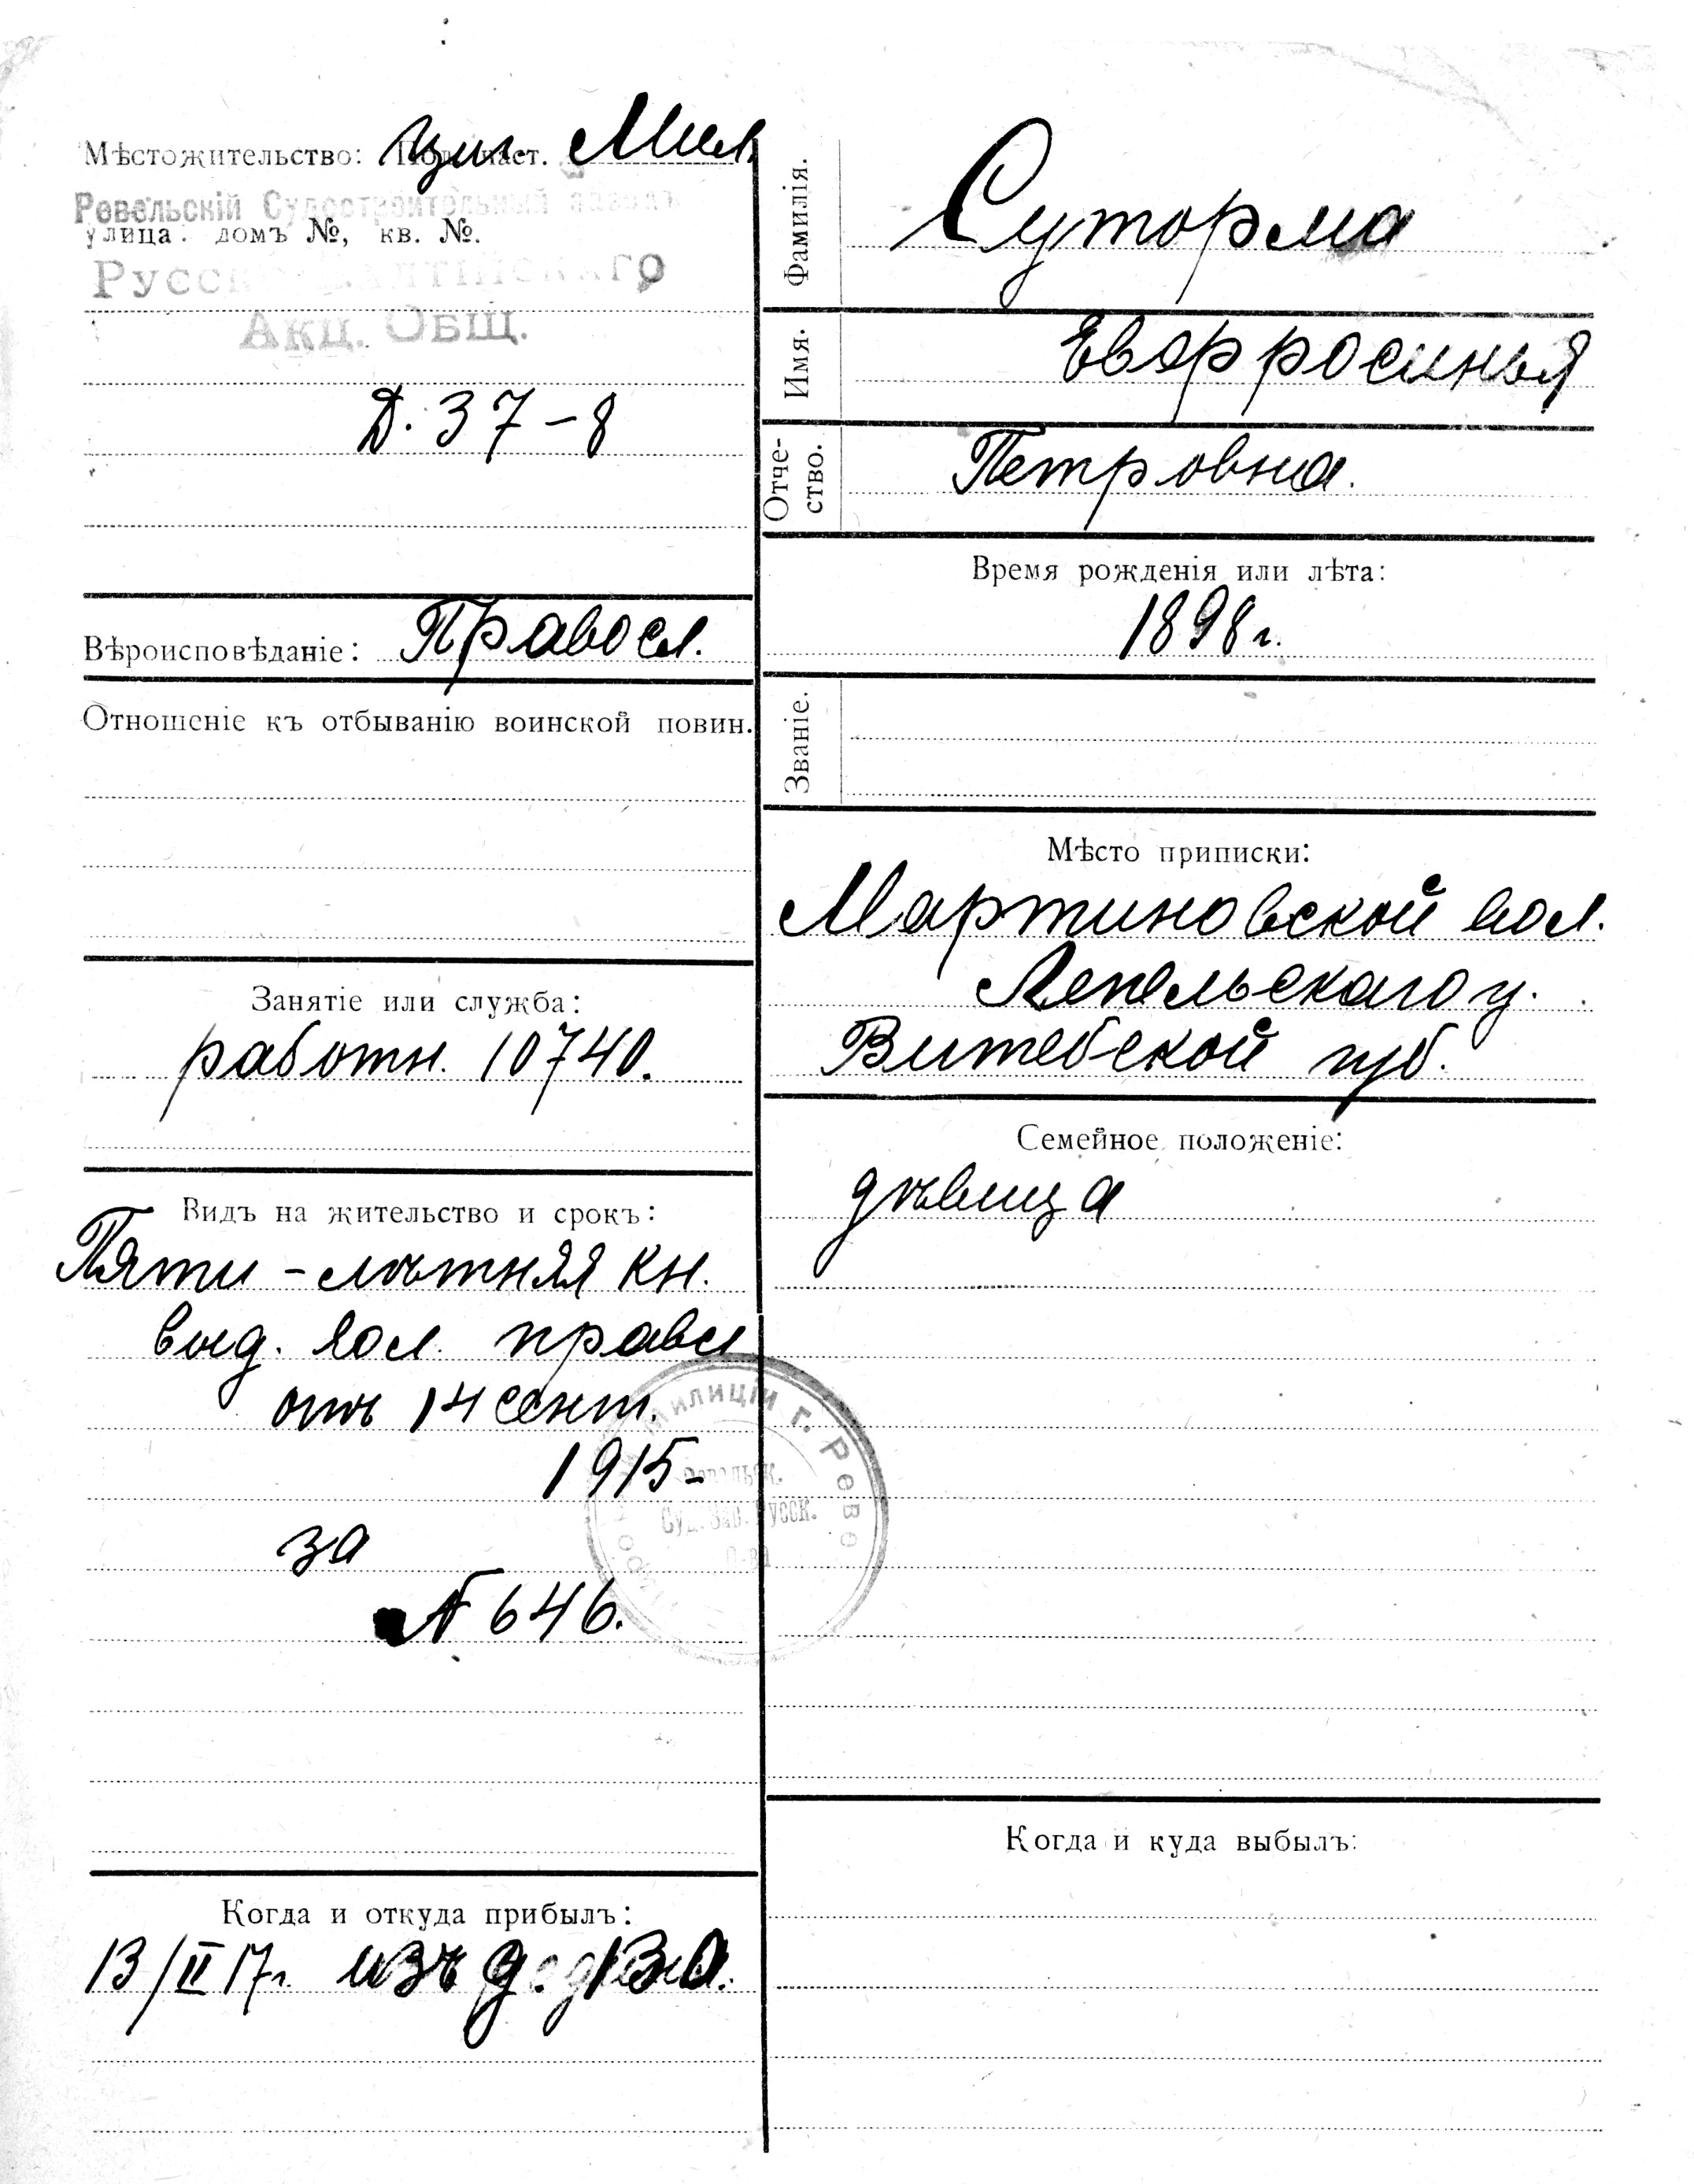 Мѣстожительство: Мил.
Ревельскій Судостроительный заводъ
улица. домъ №, кв. №.
Русско-Балтійскаго
Акц. Общ.
Д. 37-8
Вѣроисповѣданіе: Правосл.
Отношеніе къ отбыванію воинской повин.
Занятіе или служба:
работн. 10740.
Видъ на жительство и срокъ:
Пяти-лѣтняя кн.
выд. вол. правл
отъ 14 сент.
1915-
за
№ 646.
Милиціи г. Реве
Ревельск.
Суд. Зав. Русск.
Когда и откуда прибылъ:
13/II 17г. изъ
Фамилія. Суторма
Имя. Евфросинья
Отче-
ство. Петровна.
Время рожденія или лѣта:
1898г.
Званіе.
Мѣсто приписки:
Мартиновской вол.
Лепельскаго у.
Витебской губ.
Семейное положеніе:
дѣвица
Когда и куда выбылъ: